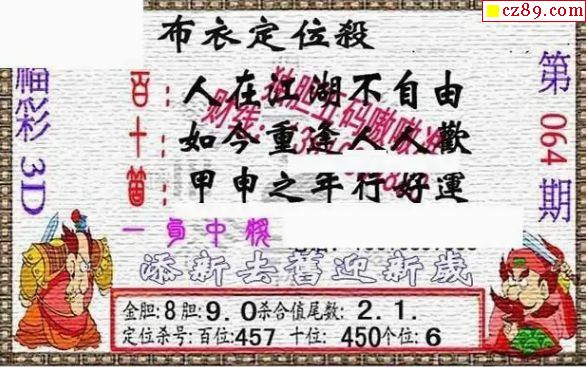 cz89.com
布衣定位殺
福彩3D
第064期
百:人在江湖不自由
十:如今重逢人人歡
個:甲申之年行好運
添新去舊迎新歲
金胆:8胆:9.0杀合值尾数:2.1.
定位杀号:百位:457 十位:450个位:6